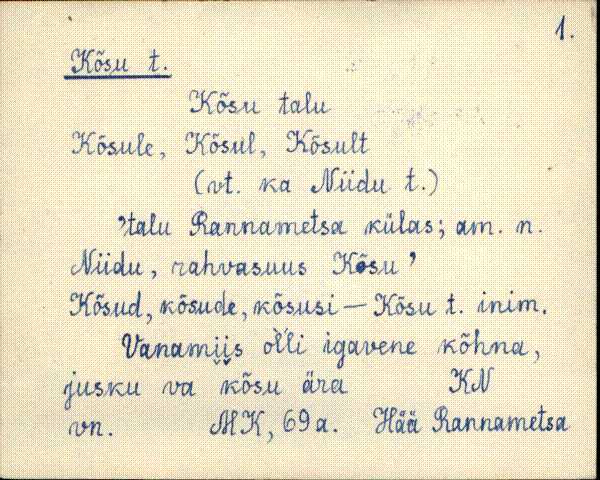 1.
Kõsu t.
Kõsu talu
Kõsule, Kõsul, Kõsult
(vt. ka Niidu t.)
'talu Rannametsa külas; am. n.
Niidu, rahvasuus Kõsu'
Kõsud, kõsude, kõsusi – Kõsu t. inim.
Vanamiis olli igavene kõhna,
jusku va kõsu ära KN
vn. MK, 69 a. Hää Rannametsa